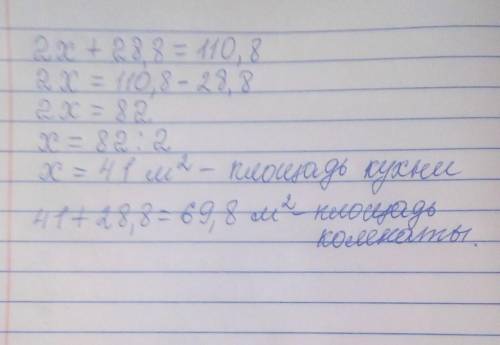 2x + 28,8 = 110,8
2x = 110,8 - 28,8
2x = 82
x = 82 : 2
x = 41 м² - площадь кухни
41 + 28,8 = 69,8 м² - площадь
комнаты.